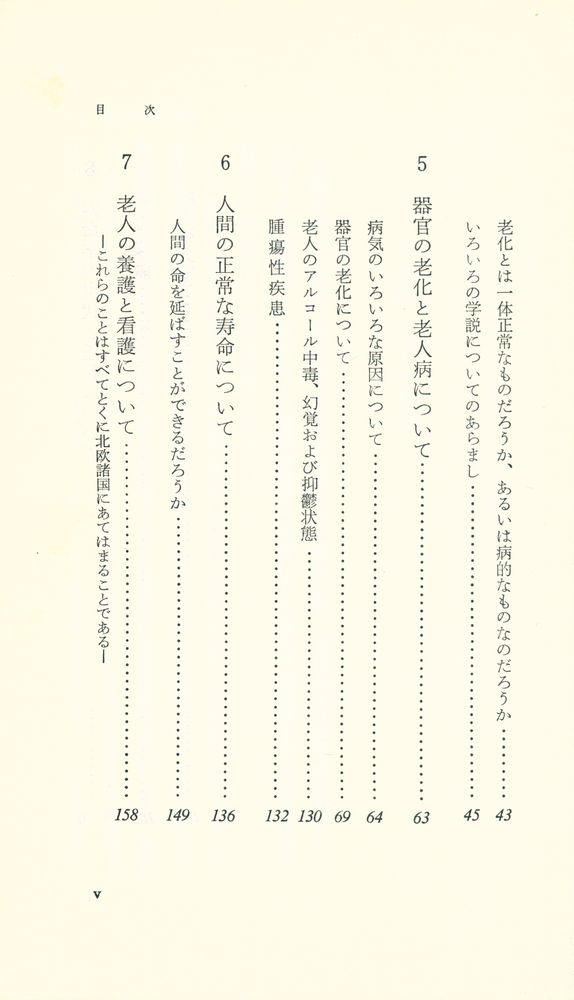 目次
老化とは一体正常なものだろうか、あるいは病的なものなのだろうか……………43
いろいろの学説についてのあらまし……………45
5 器官の老化と老人病について……………63
病気のいろいろな原因について……………64
器官の老化について……………69
老人のアルコール中毒、幻覚および抑鬱状態……………130
腫瘍性疾患……………132
6 人間の正常な寿命について……………136
人間の命を延ばすことができるだろうか……………149
7 老人の養護と看護について……………158
―これらのことはすべてとくに北欧諸国にあてはまることである―
v